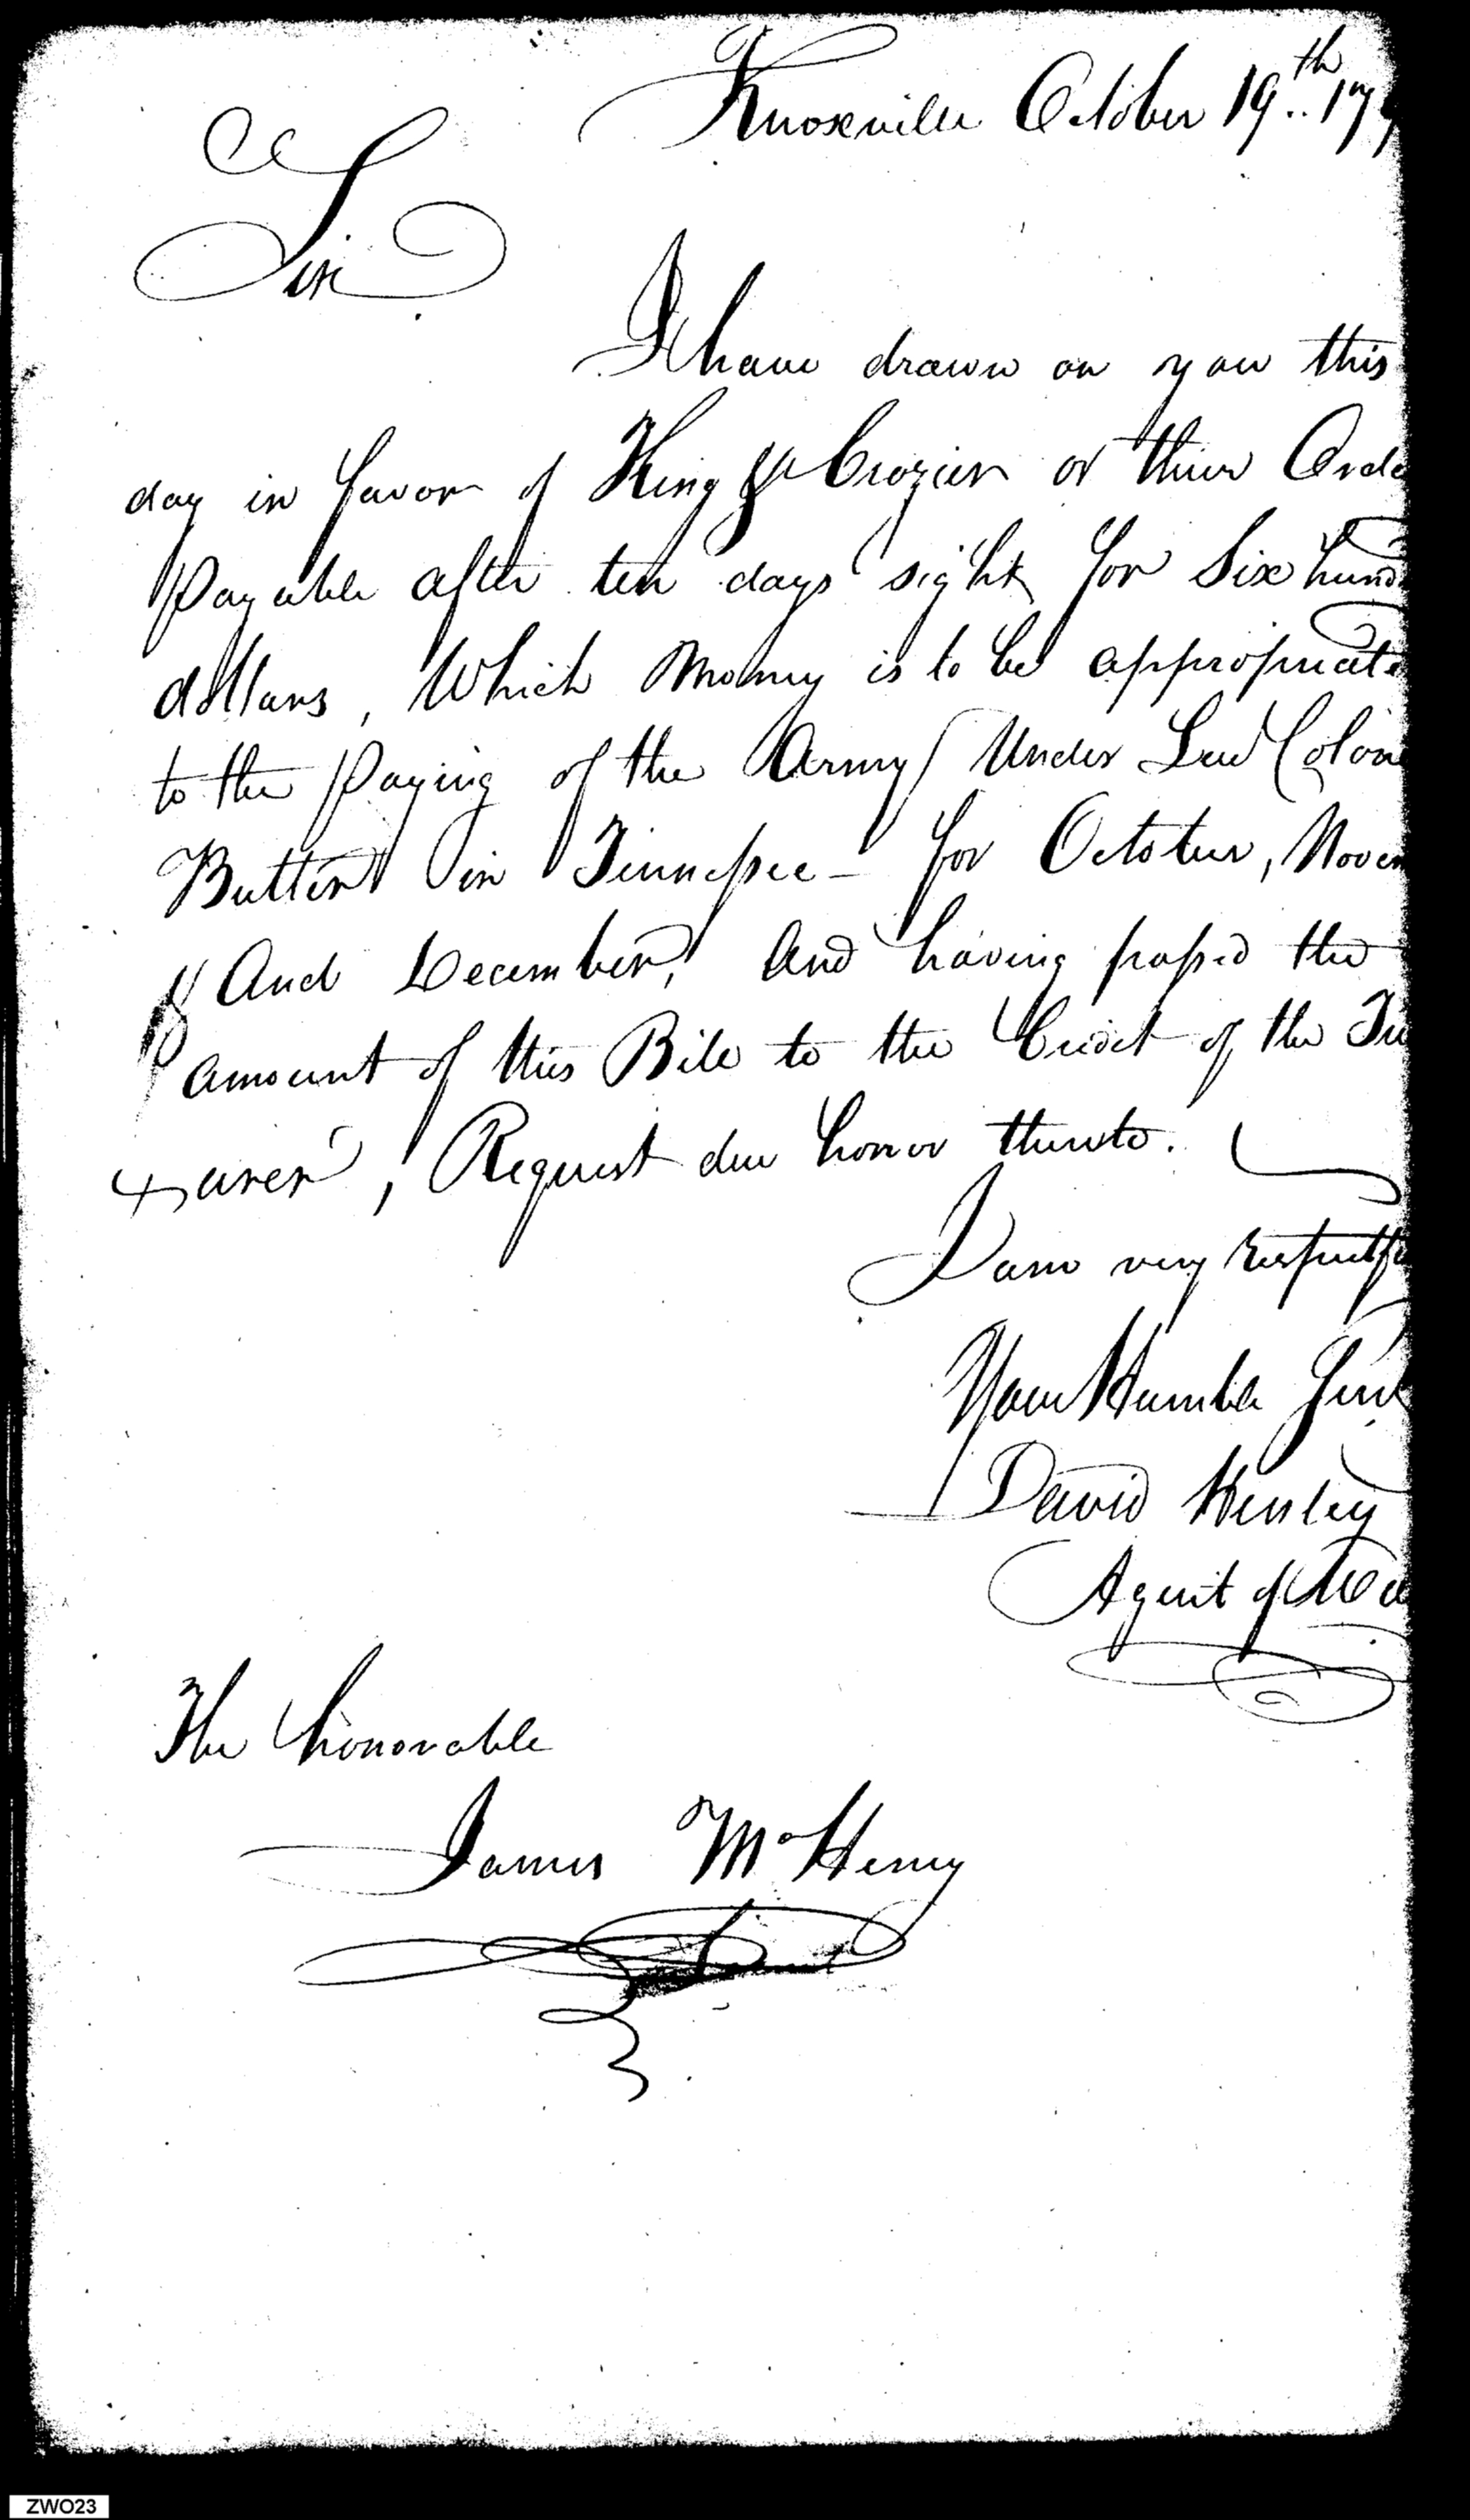 Knoxville October 19th.. 179
Sir
I have drawn on you this
day in favor of King & Crozier or their Orde
Payable after ten days sight for Six hund
dollars, Which Money is to be appropriate
to the Paying of the Army Under Lieu Colon
Butler in Tennessee - for October, Novem
& And December, And having passed the
amount of this Bill to the Credit of the Trea
surer, Request due honor thereto.
I am very respectfu
Your Humble Serv
David Henley
Agent of Wa
The honorable
James McHenry
ZWO23